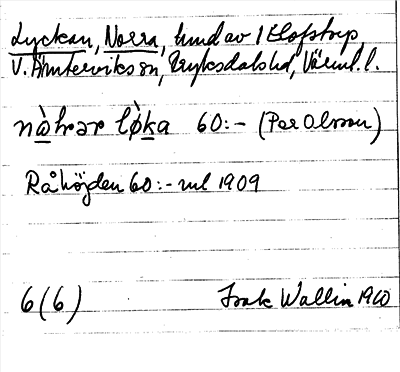 Lyckan, Norra, hmd av 1 Elofstorp
V. Ämterviks sn, Fryksdals hd, Värml. l.
nà̱hrər lø̀ḵa 60:- (Per Olsson)
Råhöjden 60:- rul 1909
6 (6) Isak Wallin 1960